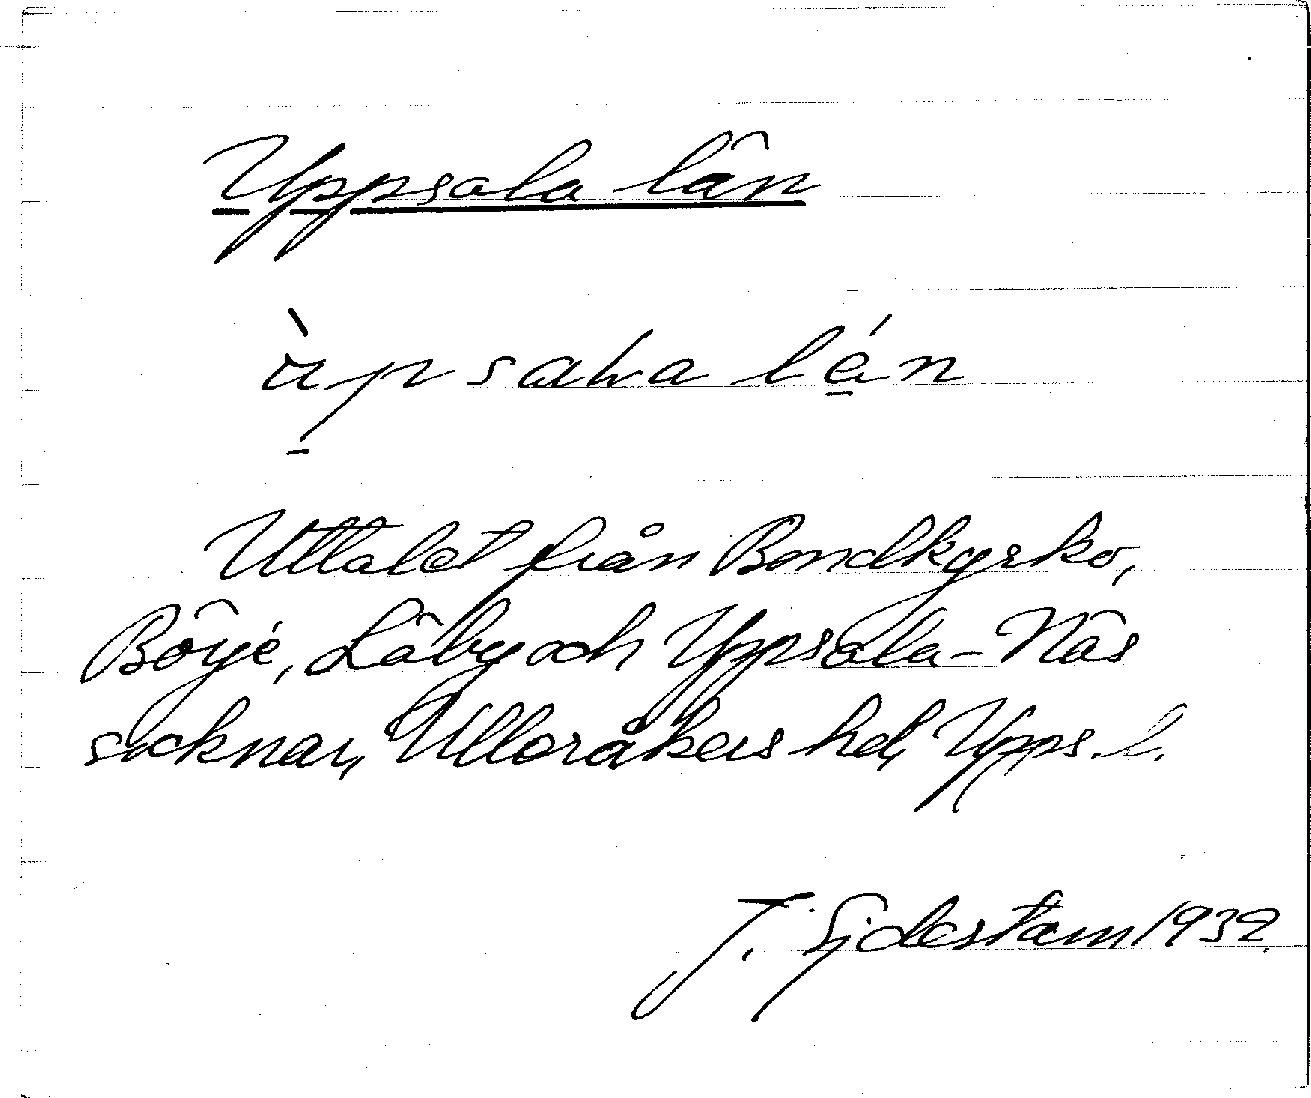 Uppsala län
ùpsala lén
Uttalet från Bondkyrko,
Börje, Läby och Uppsala-Näs
socknar, Ulleråkers hd, Upps. l.
J. Sjdestam 1932.